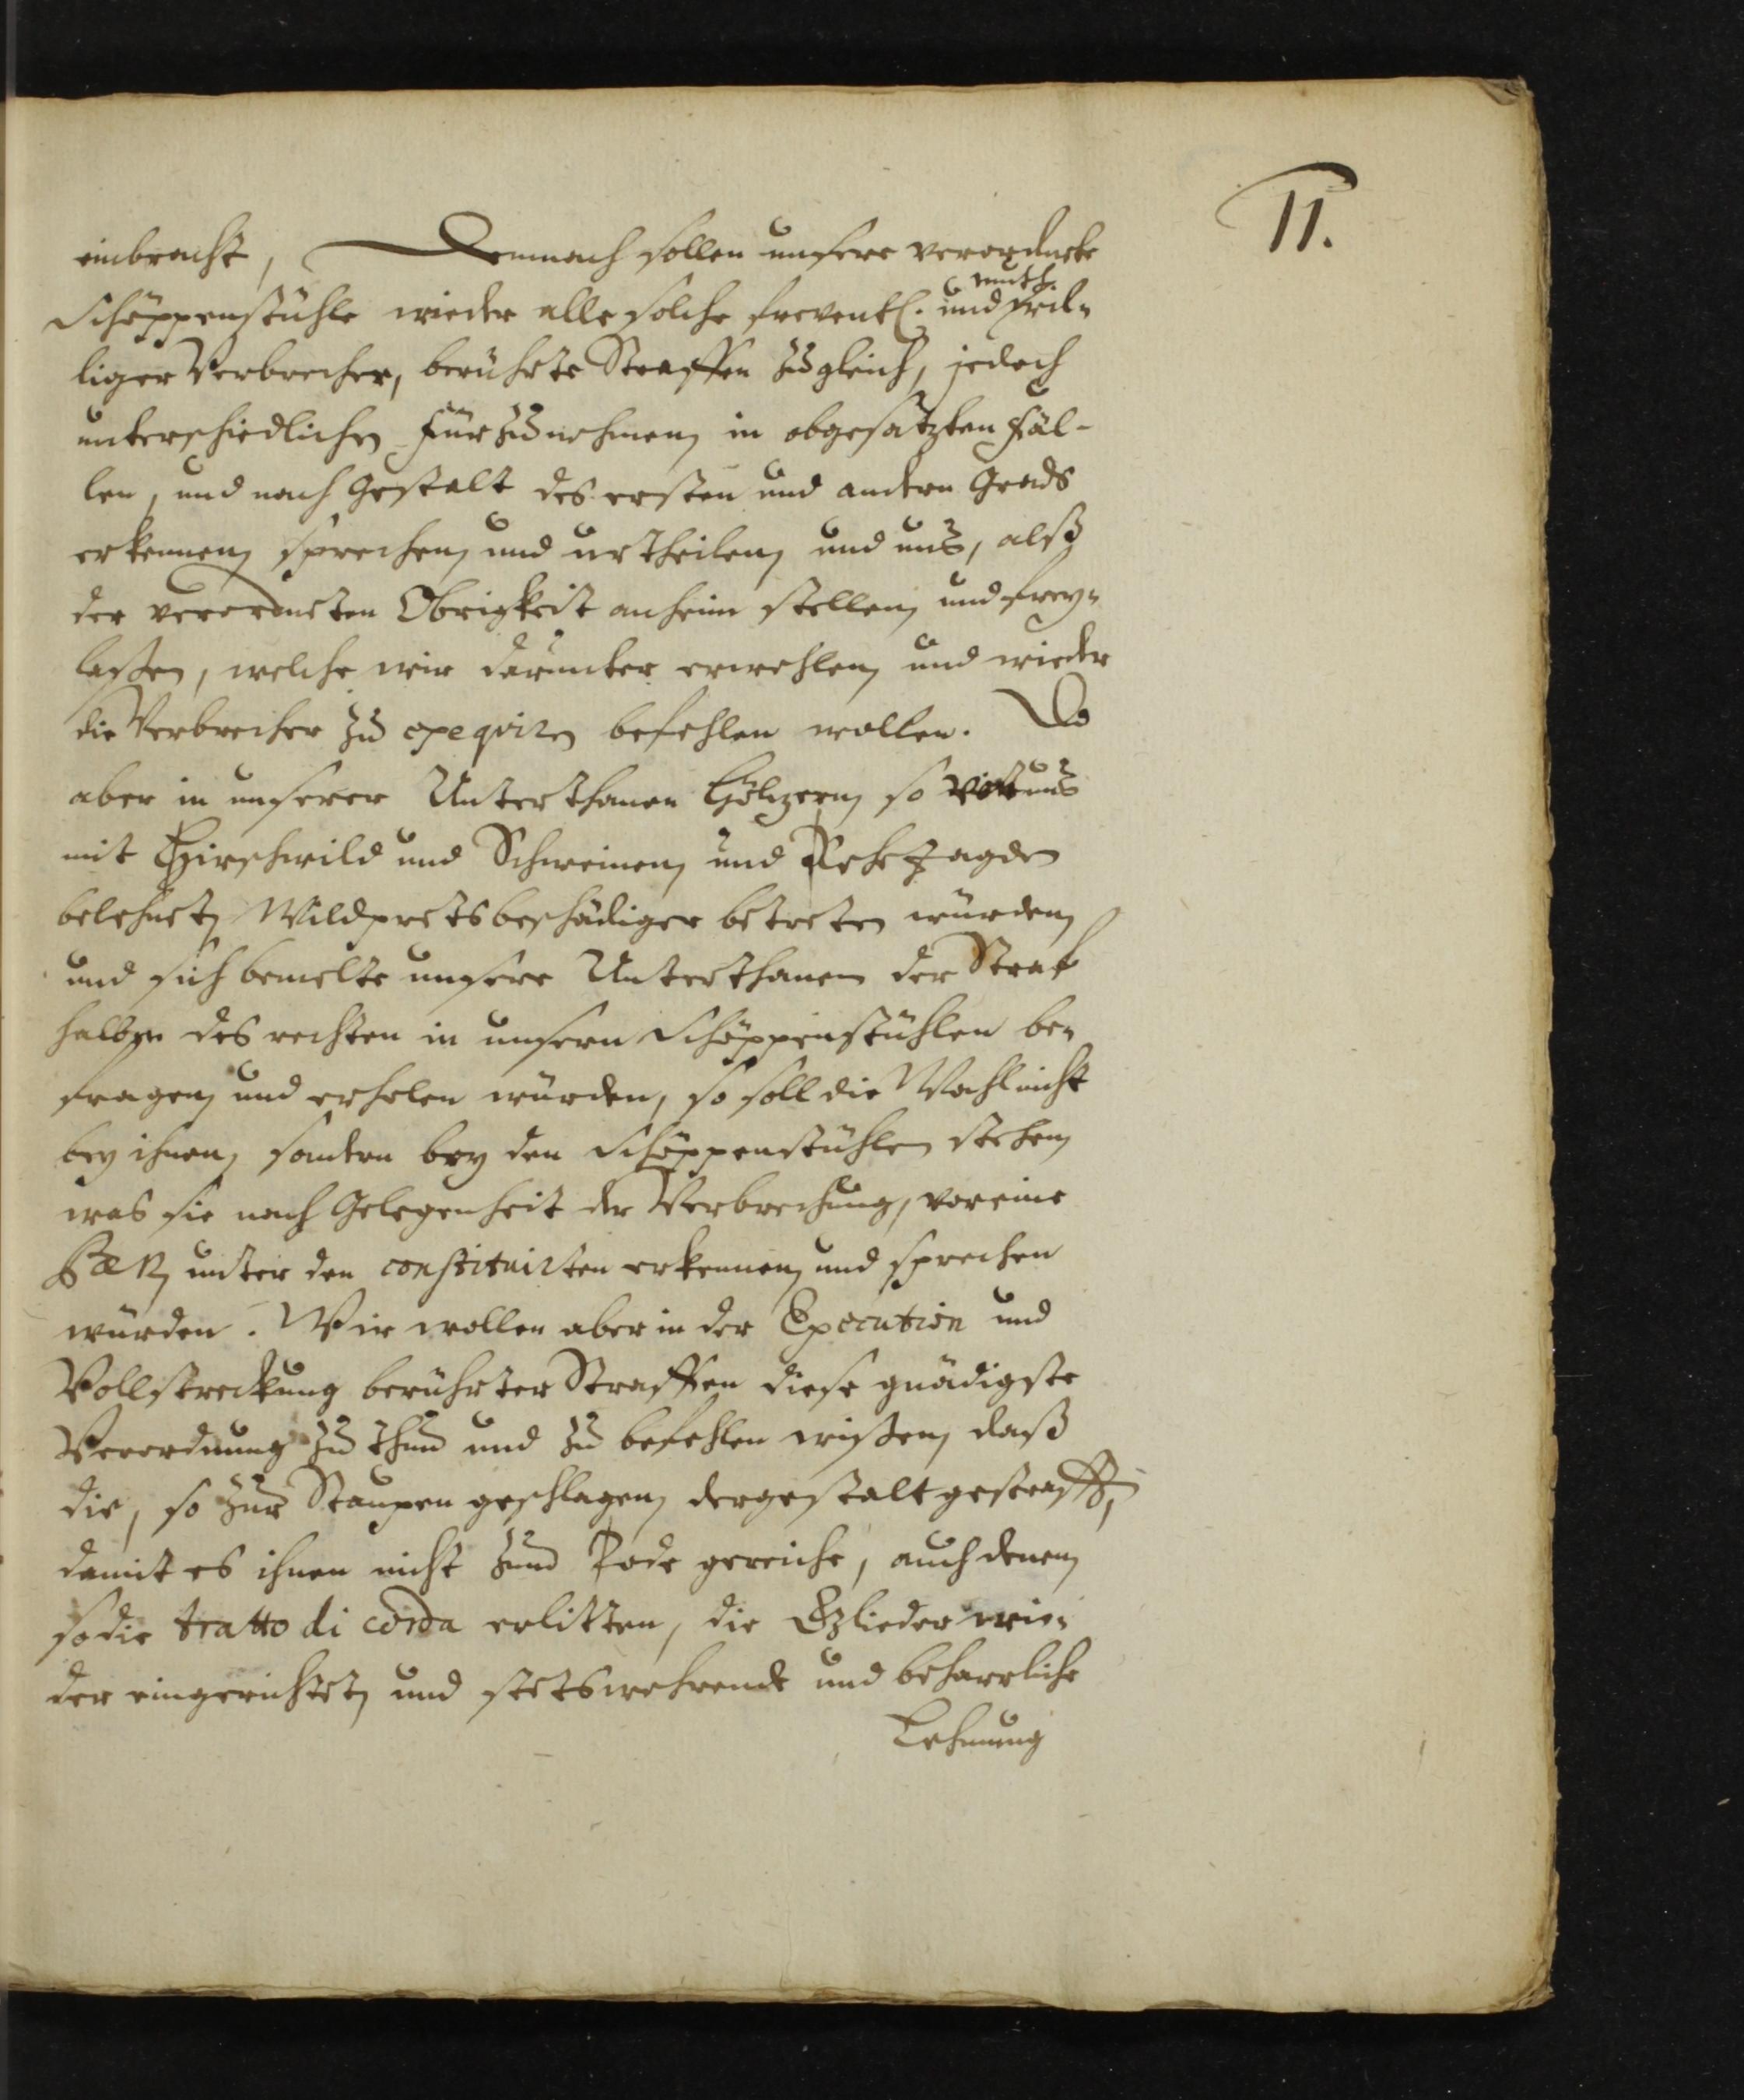 11.
einbracht, Demnach sollen unsere verordnete
Schöppenstühle wieder alle solche freventl. und
muth-
liger Verbrecher, berührte Straffen zugleich, jedoch
unterschiedlichen fürzunehmen, in obgesatzten Fäl-
len, und nach Gestalt des ersten und andern Grads
erkennen, sprechen, und urtheilen, und uns, alß
der verordneten Obrigkeit anheim stellen, und frey-
lassen, welche wir darunter erwehlen, und wieder
die Verbrecher zu exequiren befehlen wollen. Do
aber in unserer Unterthanen Höltzern, so von uns
mit Hirschwild und Schweinen, und Rehe Jagden
belehnet, Wildpretsbeschädiger betreten würden,
und sich bemelte unsere Unterthanen der Straf
halben des rechten in unsern Schöppenstühlen be-
fragen, und erholen würden, so soll die Wahl nicht
bey ihnen, sondern bey den Schöppenstühlen stehen,
was sie nach Gelegenheit der Verbrechung, vor eine
Pæn, unter den constituirten erkennen, und sprechen
würden. Wir wollen aber in der Execution und
Vollstreckung berührter Straffen diese gnädigste
Verordnung zu thun und zu befehlen wissen, daß
die, so zur Staupen geschlagen, dergestalt gestrafft,
damit es ihnen nicht zum Tode gereiche, auch denen,
so die tratto di corda erlitten, die Glieder wie-
der eingerichtet, und stetswehrende und beharrliche
Lehmung